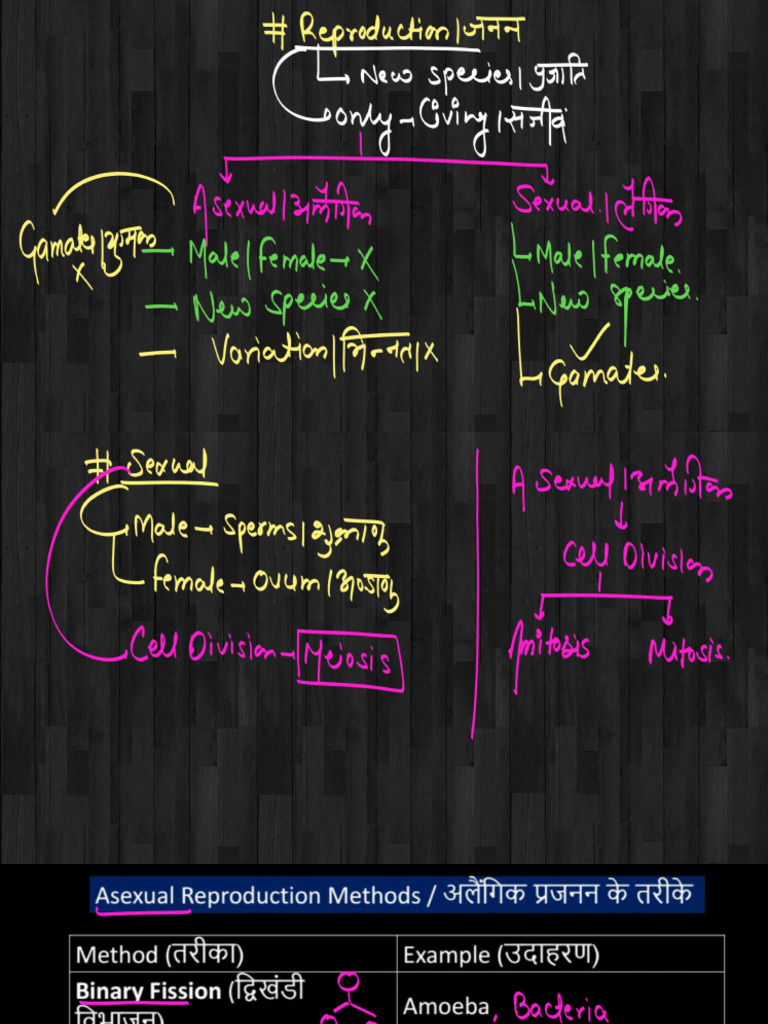 # Reproduction | जनन
New species | प्रजाति
only → Living | सजीव
Asexual | अलैंगिक
Sexual. | लैंगिक
Gamates | युग्मक
X
— Male | female → X
Male | female.
— New species X
New species.
— Variation | भिन्नता | X
✓
Gamates.
# Sexual
Male → Sperms | शुक्राणु
female → Ovum | अण्डाणु
Cell Division → Meiosis
Asexual | अलैंगिक
Cell Division
Amitosis
Mitosis.
Asexual Reproduction Methods / अलैंगिक प्रजनन के तरीके
Method (तरीका)
Example (उदाहरण)
Binary Fission (द्विखंडी
विभाजन)
Amoeba, Bacteria